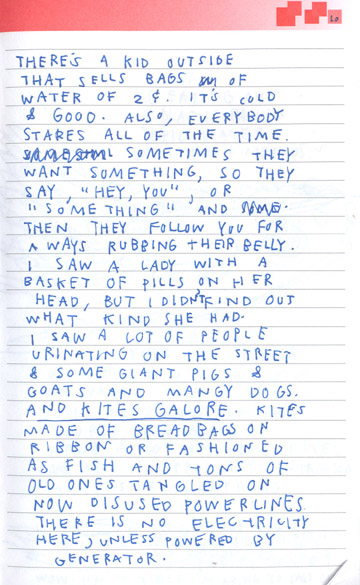 10
THERE'S A KID OUTSIDE
THAT SELLS BAGS OF
WATER OF 2¢. IT'S COLD
& GOOD. ALSO, EVERYBODY
STARES ALL OF THE TIME.
SOMETIMES THEY
WANT SOMETHING, SO THEY
SAY, "HEY, YOU", OR
"SOMETHING" AND
THEN THEY FOLLOW YOU FOR
A WAYS RUBBING THEIR BELLY.
I SAW A LADY WITH A
BASKET OF PILLS ON HER
HEAD, BUT I DIDN'T FIND OUT
WHAT KIND SHE HAD.
I SAW A LOT OF PEOPLE
URINATING ON THE STREET
& SOME GIANT PIGS &
GOATS AND MANGY DOGS.
AND KITES GALORE. KITES
MADE OF BREADBAGS ON
RIBBON OR FASHIONED
AS FISH AND TONS OF
OLD ONES TANGLED ON
NOW DISUSED POWERLINES.
THERE IS NO ELECTRICITY
HERE, UNLESS POWERED BY
GENERATOR.